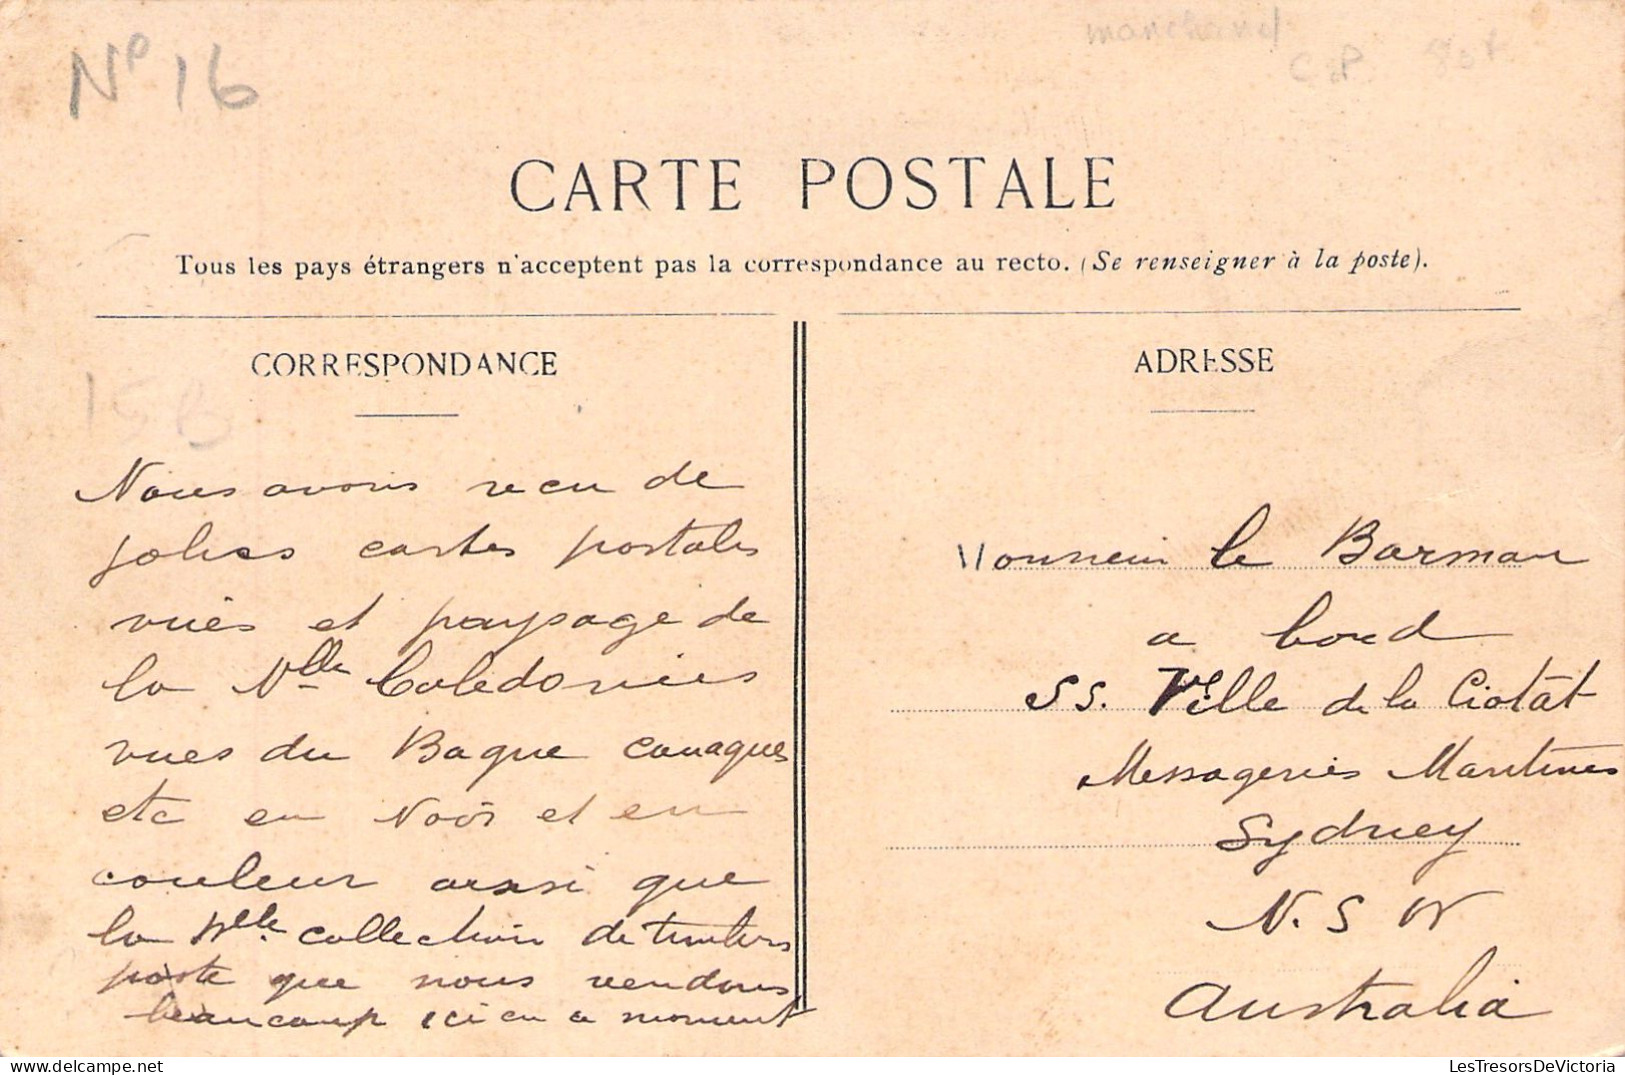 No 16
marchand
C.P.
CARTE POSTALE
Tous les pays étrangers n'acceptent pas la correspondance au recto. (Se renseigner à la poste).
CORRESPONDANCE
ADRESSE
15B
Nous avons recu de
jolies cartes postales
vues et paysage de
la Nlle Caledonies
vues du Bagne canaques
etc en Noir et en
couleur ainsi que
la Nlle collection de timbres
poste que nous vendons
beaucoup ici en ce moment
Monsieur le Barman
a bord
SS. Ville de la Ciotat
Messageries Maritimes
Sydney
N. S W
Australia
LesTresorsDeVictoria